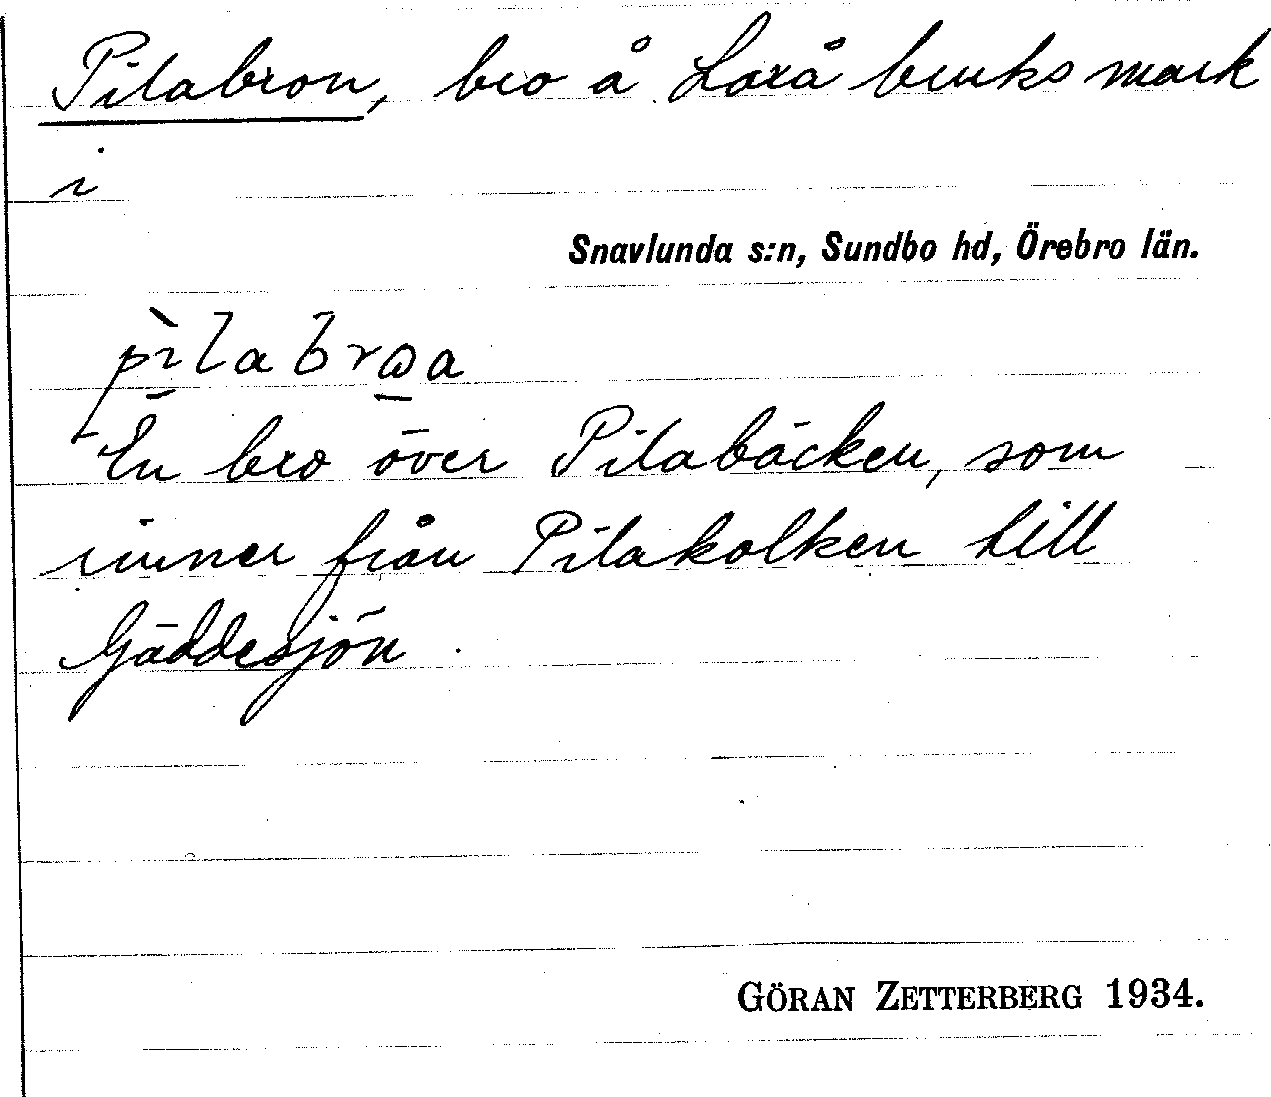 Pilabron, bro å Laxå bruks mark
i
Snavlunda s:n, Sundbo hd, Örebro län.
pìlabrωa
En bro över Pilabäcken, som
rinner från Pilakolken till
Gäddesjön.
GÖRAN ZETTERBERG 1934.